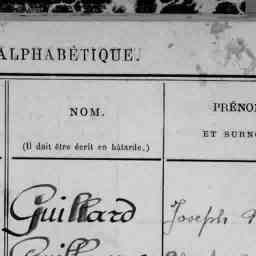 ALPHABÉTIQUE.
NOM.
(Il doit être écrit en bâtarde.)
PRÉNO
ET SURNO
Guillard
Joseph